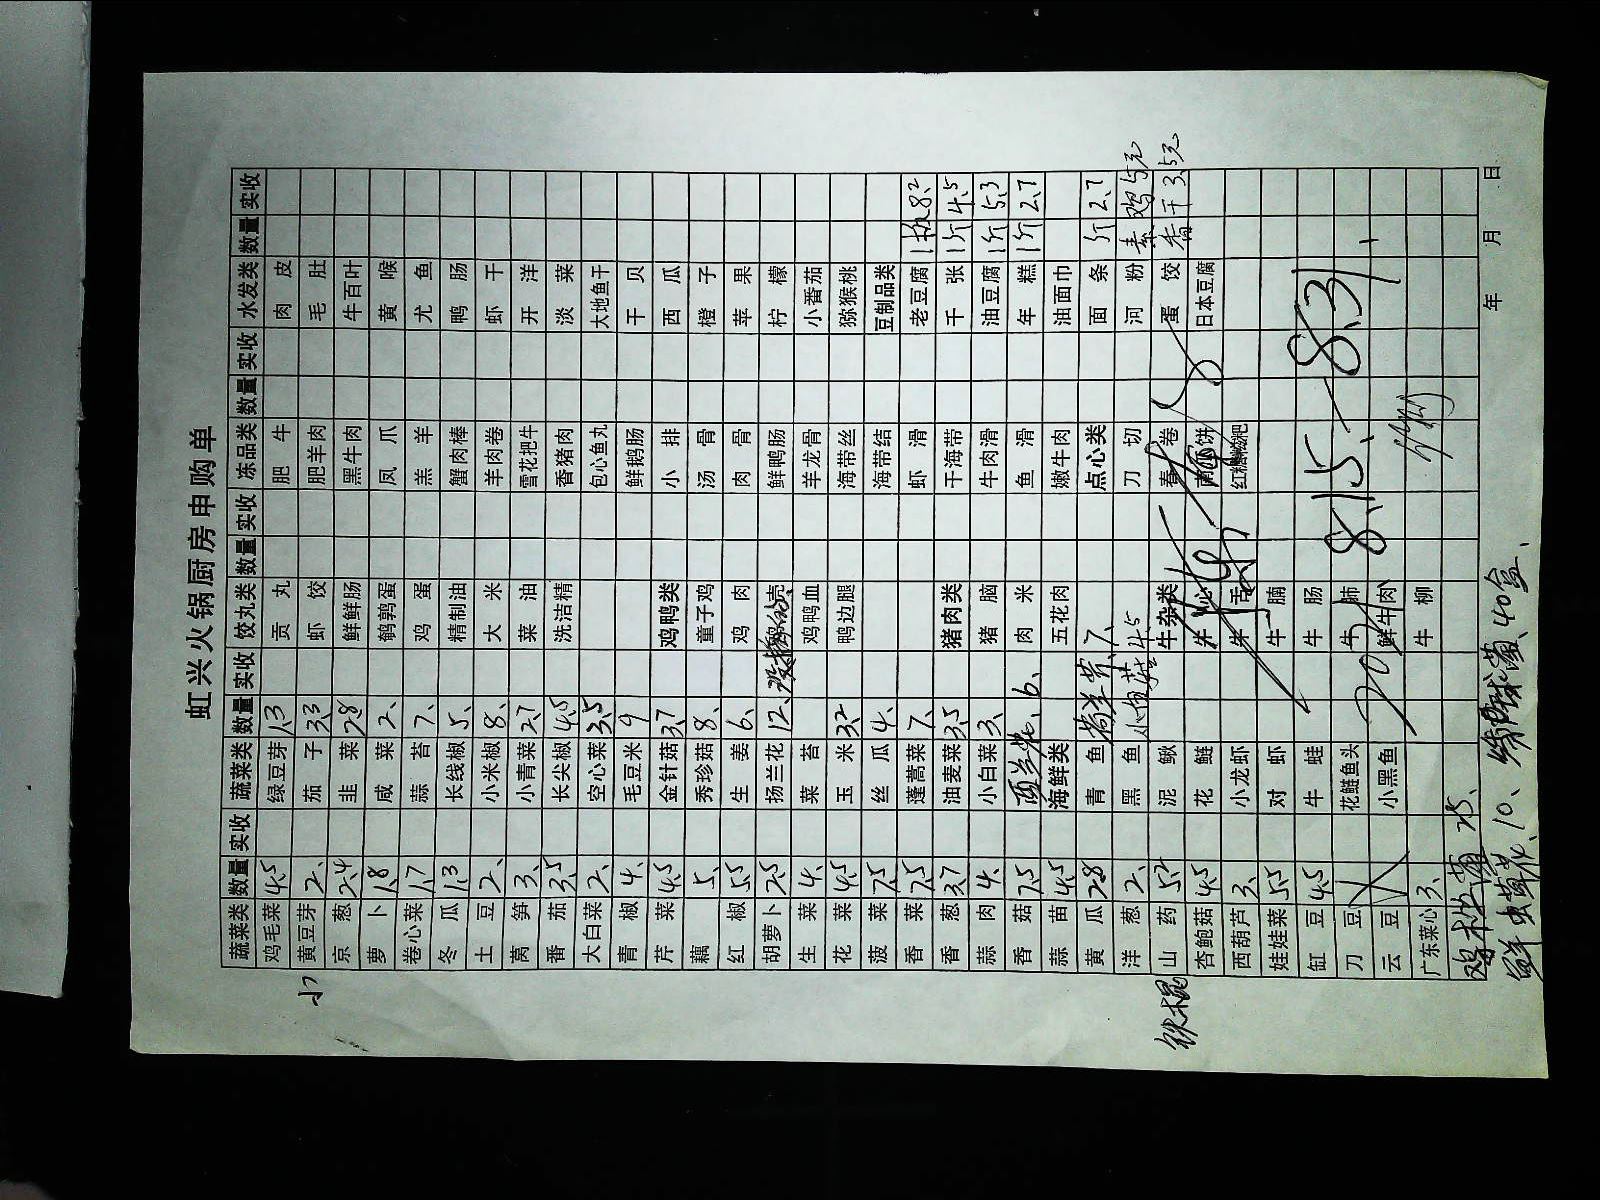 虹兴火锅厨房申购单
蔬菜类 数量 实收 蔬菜类 数量 实收 饺丸类 数量 实收 冻品类 数量 实收 水发类 数量 实收
鸡毛菜 4.5 绿豆芽 1.3 贡丸 肥牛 肉皮
小 黄豆芽 2、 茄子 3.3 虾饺 肥羊肉 毛肚
京葱 2.4 韭菜 2.8 鲜鲜肠 黑牛肉 牛百叶
萝卜 1.8 咸菜 2、 鹌鹑蛋 凤爪 黄喉
卷心菜 1.7 蒜苔 7、 鸡蛋 羔羊 尤鱼
冬瓜 1.3 长线椒 5、 精制油 蟹肉棒 鸭肠
土豆 2、 小米椒 8、 大米 羊肉卷 虾干
莴笋 3、 小青菜 2.7 菜油 雪花把牛 开洋
番茄 3.5 长尖椒 4.5 洗洁精 香猪肉 淡菜
大白菜 2、 空心菜 3.5 包心鱼丸 大地鱼干
青椒 4、 毛豆米 9 鲜鹅肠 干贝
芹菜 4.5 金针菇 3.7 鸡鸭类 小排 西瓜
藕 5、 秀珍菇 8、 童子鸡 汤骨 橙子
红椒 5.5 生姜 6、 鸡肉 肉骨 苹果
胡萝卜 2.5 扬兰花 12、 鲜鸭肠 柠檬
生菜 4、 菜苔 鸡鸭血 羊龙骨 小番茄
花菜 4.5 玉米 3.2 鸭边腿 海带丝 猕猴桃
菠菜 7.5 丝瓜 4、 海带结 豆制品类
香菜 7.5 蓬蒿菜 7、 虾滑 老豆腐 1板8.2
香葱 3.7 油麦菜 3.5 猪肉类 干海带 千张 1斤 4.5
蒜肉 4、 小白菜 3、 猪脑 牛肉滑 油豆腐 1斤 5.3
香菇 7.5 西兰花、6、 肉米 鱼滑 年糕 1斤 2.7
蒜苗 4.5 海鲜类 五花肉 嫩牛肉 油面巾
黄瓜 2.8 青鱼 点心类 面条 斤 2.7
洋葱 2、 黑鱼 刀切 河粉 素鸡 5元
铁棍 山药 5.2 泥鳅 牛杂类 春卷 蛋饺 香干 3.5元
杏鲍菇 4.5 花鲢 牛心 南瓜饼 日本豆腐
西葫芦 3、 小龙虾 牛舌 红糖糍粑
娃娃菜 5.5 对虾 牛腩
缸豆 4.5 牛蛙 牛肠
刀豆 花鲢鱼头 牛肺
云豆 小黑鱼 鲜牛肉
广东菜心 3、 牛柳
8.15—8.31
年 月 日